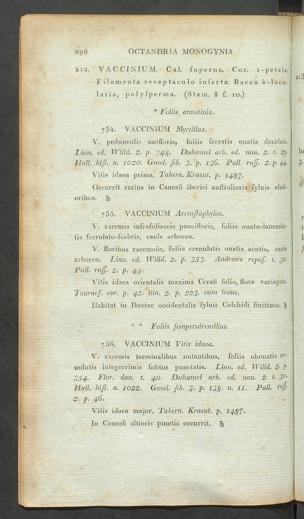 296 OCTANDRIA MONOGYNIA
212. VACCINIUM. Cal. superus. Cor. 1-petala.
Filamenta receptaculo inserta. Bacca 4-locu-
laris, polysperma. (Stam. 8 f. 10.)
* Foliis annotinis.
734. VACCINIUM Myrtillus.
V. pedunculis unifloris, foliis serratis ouatis deciduis
Linn. ed. Willd. 2. p. 348. Duhamel arb. ed. nou. 2. t.
Hall. hist. n. 1020. Gmel. sib. 3. p. 136. Pall. ross. 2. p. 44.
Vitis idaea prima. Tabern. Kraeut. p. 1487.
Occurrit rarius in Caucasi iberici australioris syluis elati-
oribus. ♄
735. VACCINIUM Arctostaphylos.
V. racemis infrafoliaceis paucifloris, foliis ouato-lanceola-
tis serrulato-scabris, caule arboreo.
V. floribus racemosis, foliis crenulatis ouatis acutis, caule
arboreo. Linn. ed. Willd. 2. p. 353. Andrews repos. t. 30.
Pall. ross. 2. p. 45.
Vitis idaea orientalis maxima Cerasi folio, flore variegato
Tournef. cor. p. 42. itin. 2. p. 223. cum icone.
Habitat in Iberiae occidentalis syluis Colchidi finitimis. ♄
* * Foliis sempervirentibus.
736. VACCINIUM Vitis idaea.
V. racemis terminalibus nutantibus, foliis obouatis re-
uolutis integerrimis subtus punctatis. Linn. ed. Willd. 2. p.
354. Flor. dan. t. 40. Duhamel arb. ed. nou. 2. t.
Hall. hist. n. 1022. Gmel. sib. 3. p. 138. n. 11. Pall. ross.
2. p. 46.
Vitis idaea major. Tabern. Kraeut. p. 1487.
In Caucasi altioris pinetis occurrit. ♄